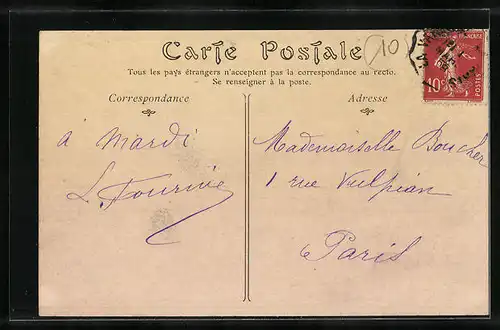 Carte Postale
10
Tous les pays étrangers n'acceptent pas la correspondance au recto.
Se renseigner à la poste.
Correspondance
Adresse
à Mardi
Mademoiselle Boucher
1 rue Vulpian
Paris
10c
POSTES
LA